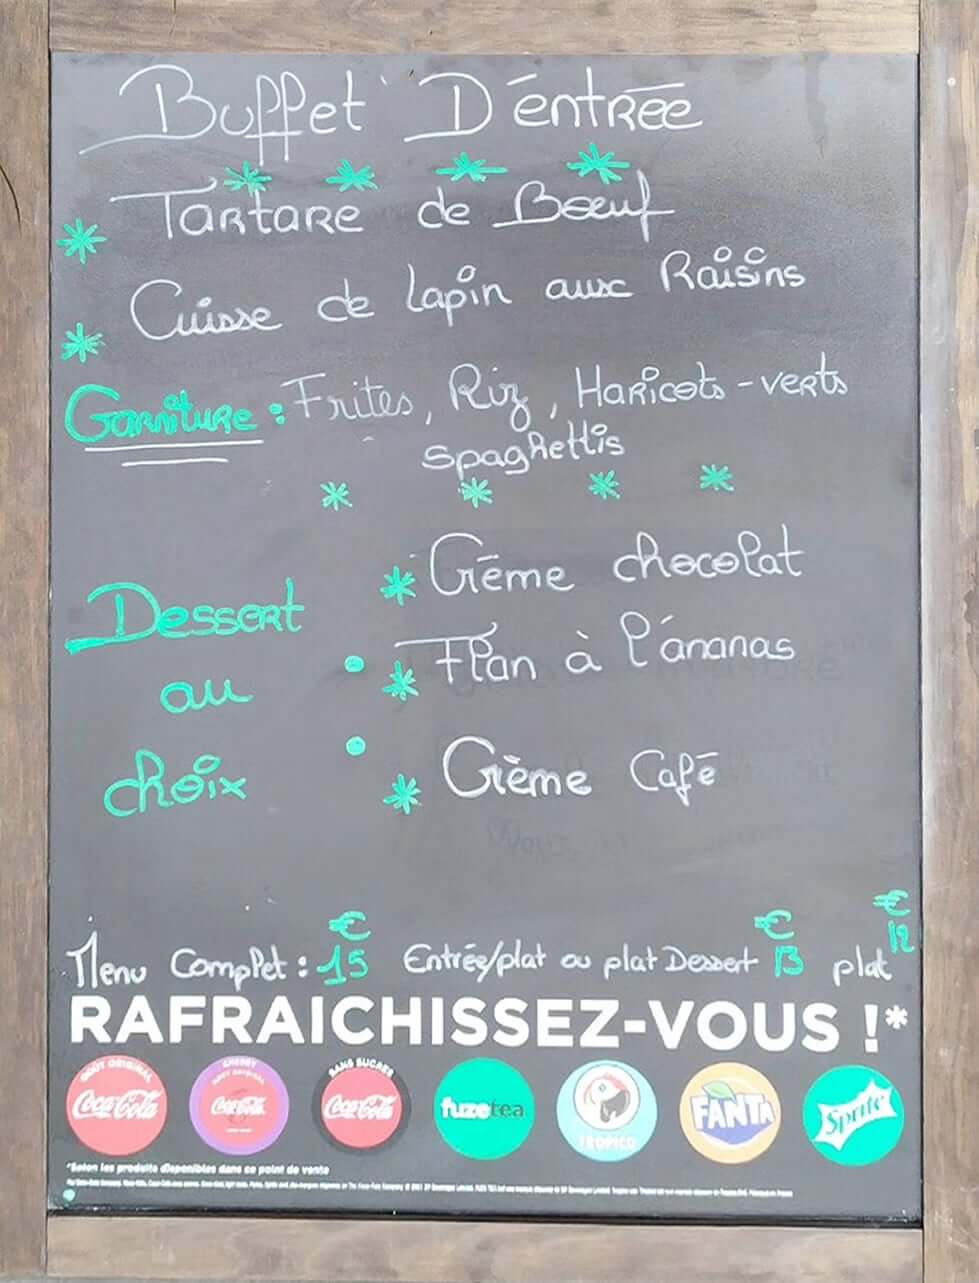 Buffet D'entrée
Tartare de Bœuf
Cuisse de lapin aux Raisins
Garniture : Frites, Riz, Haricots-verts
spaghettis
Dessert
au
choix :
Crème chocolat
Flan à l'ananas
Crème Café
Menu Complet : 15 € Entrée/plat ou plat Dessert 13 € plat 12 €
RAFRAICHISSEZ-VOUS !*
GOÛT ORIGINAL
Coca-Cola
CHERRY
GOÛT ORIGINAL
Coca-Cola
SANS SUCRES
Coca-Cola
fuzetea
TROPICO
FANTA
Sprite
*Selon les produits disponibles dans ce point de vente